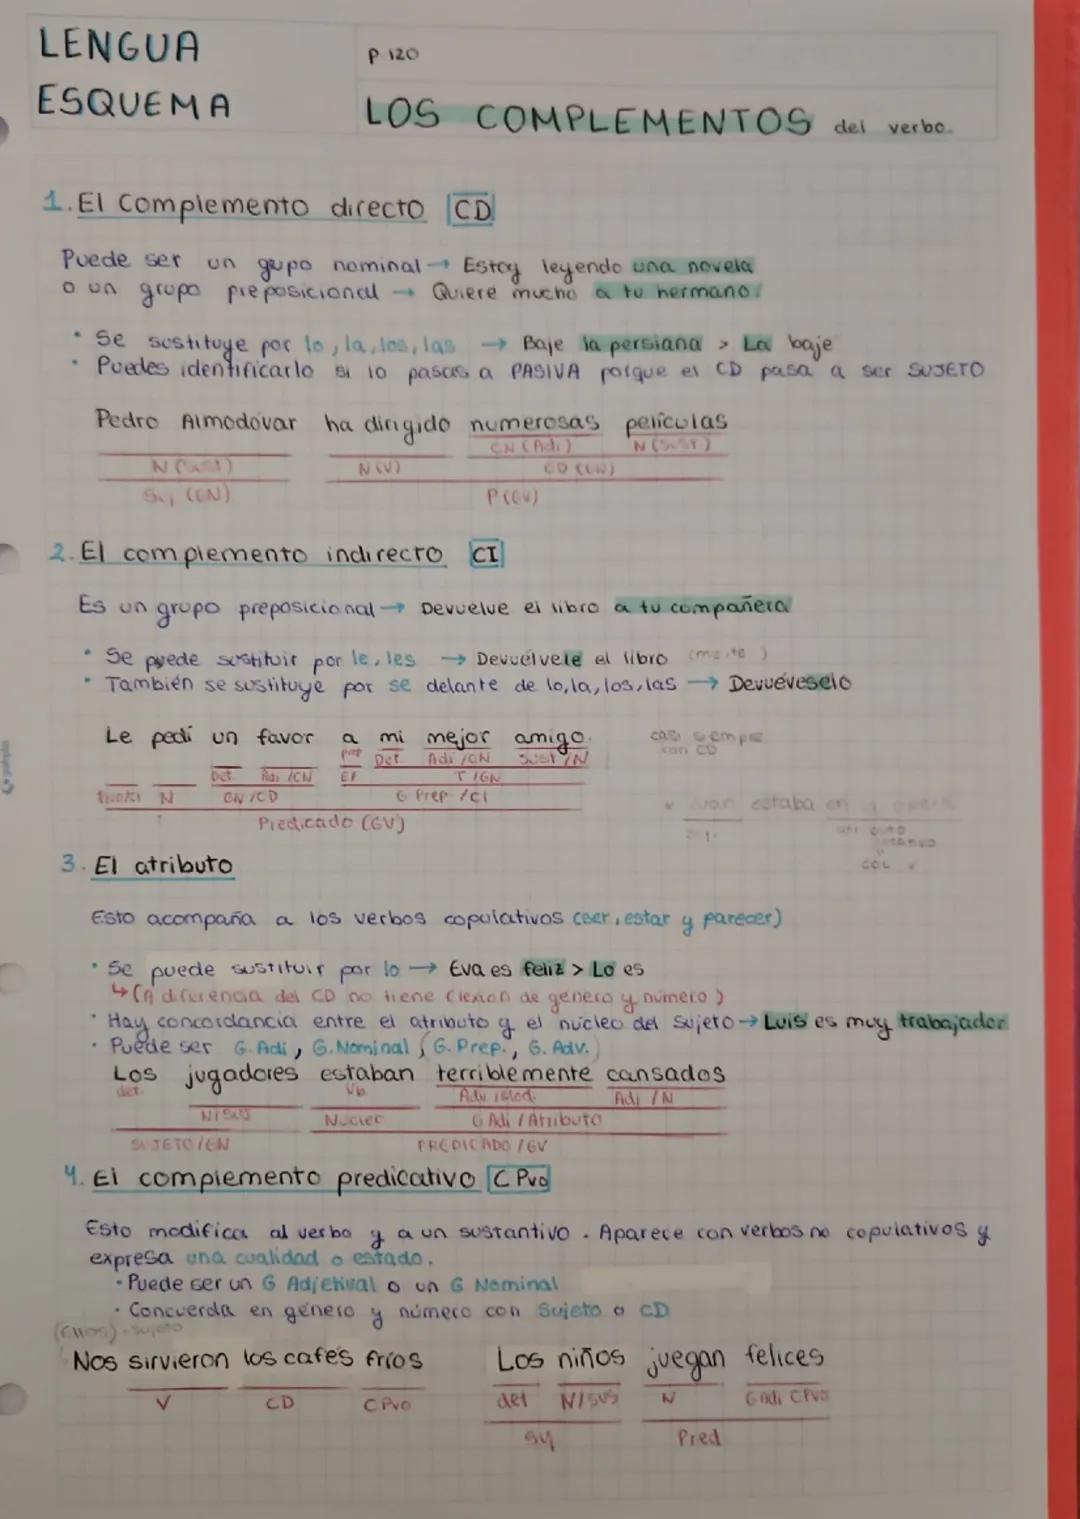 LENGUA
ESQUEMA
p. 120
LOS COMPLEMENTOS del verbo.
1. El Complemento directo CD
Puede ser un gupo nominal → Estoy leyendo una novela
o un grupo preposicional → Quiere mucho a tu hermano.
• Se sustituye por lo, la, los, las → Baje la persiana > La baje
• Puedes identificarlo si lo pasas a PASIVA porque el CD pasa a ser SUJETO
Pedro Almodovar ha dirigido numerosas películas
CN (Adj) N (Sust)
N (Sust) N (V) CD (GN)
Suj (GN) P (GV)
2. El complemento indirecto CI
Es un grupo preposicional → Devuelve el libro a tu compañera
• Se puede sustituir por le, les → Devuélvele el libro (me, te )
• También se sustituye por se delante de lo, la, los, las → Devuéveselo
Le pedi un favor a mi mejor amigo.
casi siempre
con CD
prep Det Adj /CN Sust /N
Det Adj /CN E/ T /GN
N GN /CD G Prep /CI
Predicado (GV)
estaba en
3. El atributo
Esto acompaña a los verbos copulativos (ser, estar y parecer)
• Se puede sustituir por lo → Eva es feliz > Lo es
↳ (A diferencia del CD no tiene flexion de genero y número)
• Hay concordancia entre el atributo y el núcleo del Sujeto → Luis es muy trabajador
• Puede ser G. Adj, G. Nominal, G. Prep., G. Adv.
Los jugadores estaban terriblemente cansados
det. Vb Adv /Mod Adj /N
N/Sus Nucleo G Adj / Atributo
SUJETO /GN PREDICADO /GV
4. El complemento predicativo C Pvo
Esto modifica al verbo y a un sustantivo. Aparece con verbos no copulativos y
expresa una cualidad o estado.
• Puede ser un G Adjetival o un G Nominal
• Concuerda en género y número con Sujeto o CD
(Ellos) - sujeto
Nos sirvieron los cafés fríos Los niños juegan felices
V CD C Pvo det N/Sus N G Adj CPvo
Suj Pred